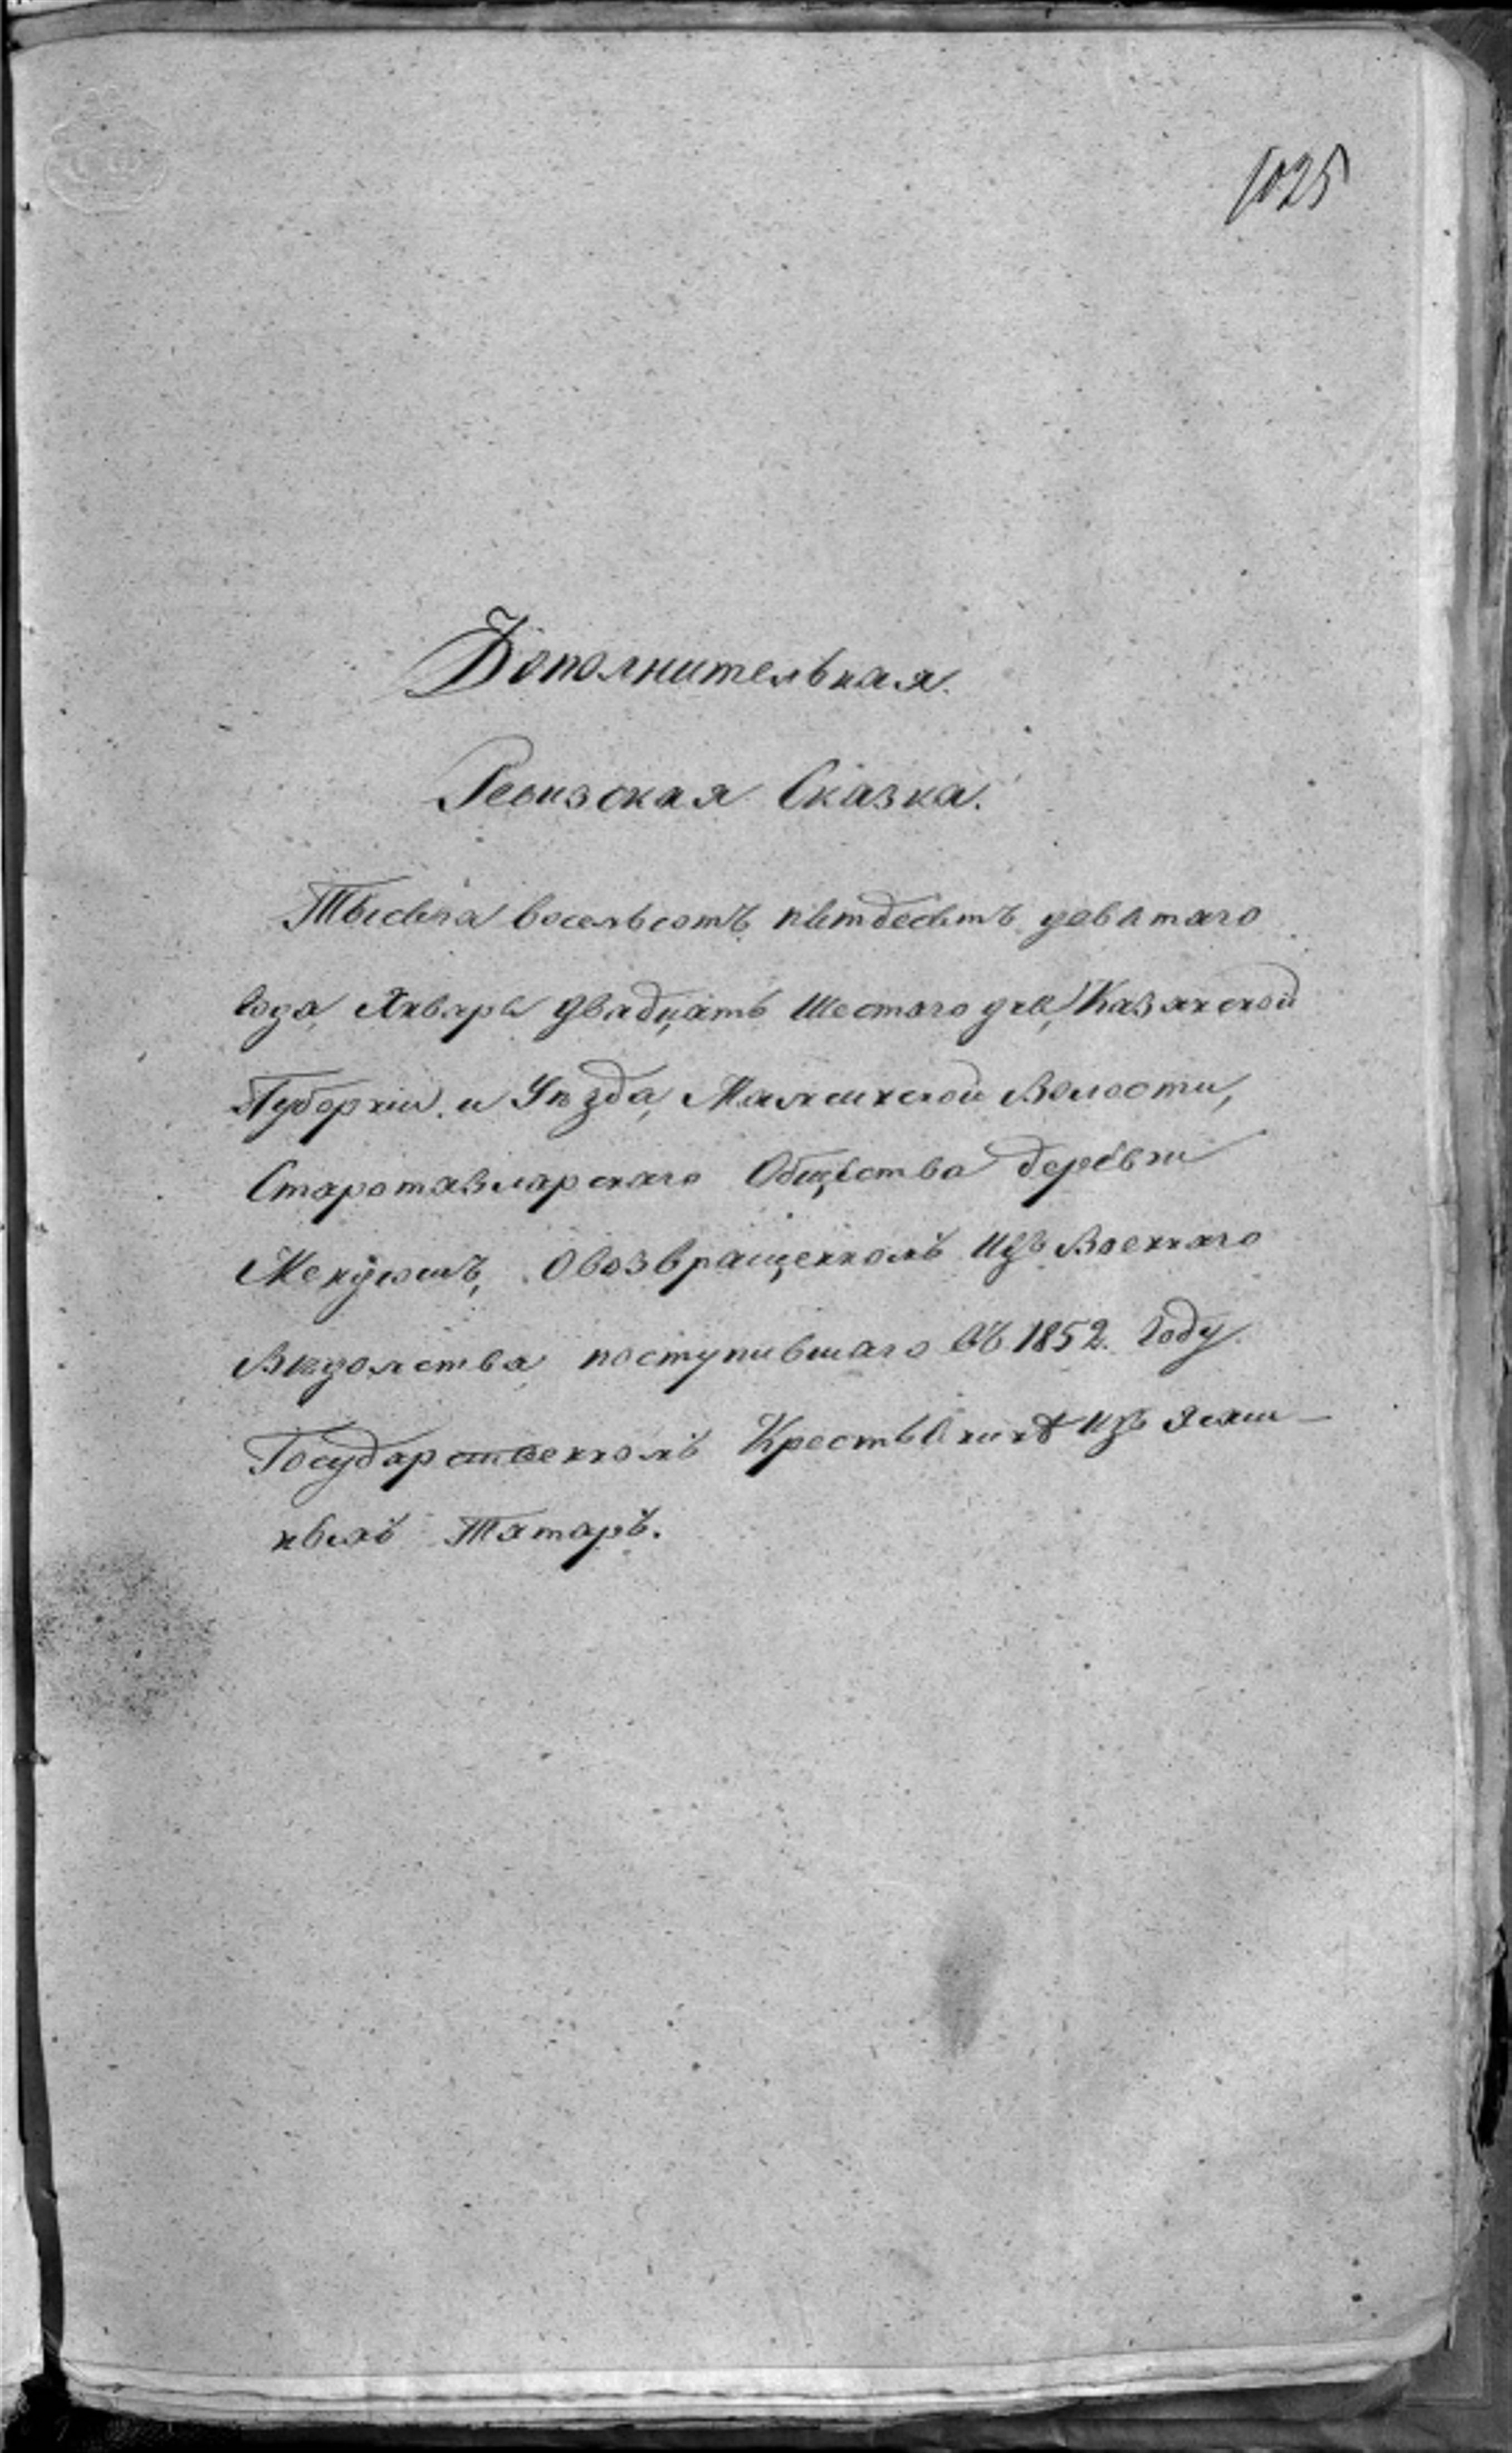 1025
Дополнительная.
Ревизская Сказка.
Тысяча восемьсотъ пятдесятъ девятаго
года, Января двадцать шестаго дня, Казанской
Губернии и Уѣзда, Мамсинской Волости,
Старотазларскаго Общества деревни
Менуюшъ, О возвращенномъ изъ Военнаго
Вѣдомства поступившаго въ 1852. Году
Государственномъ Крестьянинѣ изъ Ясаш-
ныхъ Татаръ.